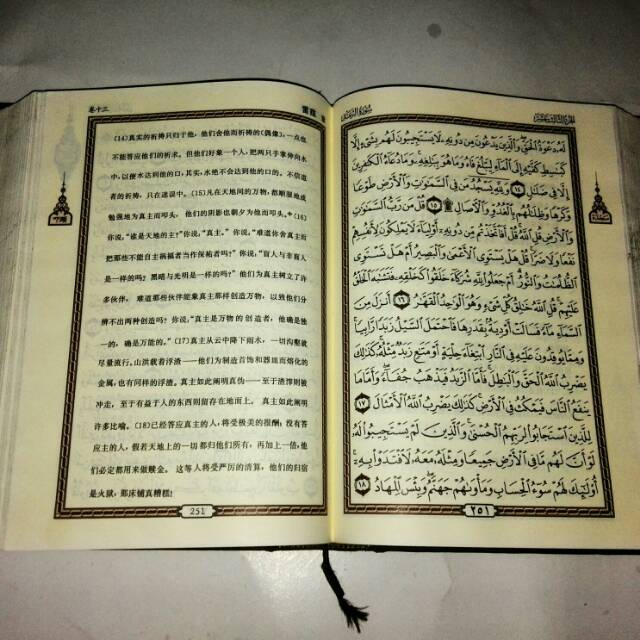 卷十三
雷霆
(14)真实的祈祷只归于他,他们舍他而祈祷的(偶像),一点也
不能答应他们的祈求。但他们好象一个人,把两只手掌伸向水
中,以便水达到他的口,其实,水绝不会达到他的口的。不信道
者的祈祷,只在迷误中。(15)凡在天地间的万物,都顺服地或
勉强地为真主而叩头,他们的阴影也朝夕为他而叩头。*(16)
你说:“谁是天地的主?”你说:“真主。”你说:“难道你舍真主而
把那些不能自主祸福者当作保佑者吗?”你说:“盲人与非盲人
是一样的吗?黑暗与光明是一样的吗?”他们为真主树立了许
多伙伴,难道那些伙伴能象真主那样创造万物,以致他们分
辨不出两种创造吗?你说:“真主是万物的创造者,他确是独
一的,确是万能的。”(17)真主从云中降下雨水,一切沟壑就
尽量流行。山洪载着浮渣——他们为制造首饰和器皿而熔化的
金属,也有同样的浮渣。真主如此阐明真伪——至于渣滓则被
冲走,至于有益于人的东西则留存在地面上。真主如此阐明
许多比喻。(18)已经答应真主的人,将受极美的报酬;没有答
应主的人,假若天地上的一切都归他们所有,再加上一倍,他
们必定都用来做赎金。这等人将受严厉的清算,他们的归宿
是火狱,那床铺真糟糕!
251
الجزء الثالث عشر
سورة الرعد
لَهُ دَعْوَةُ الْحَقِّ وَالَّذِينَ يَدْعُونَ مِنْ دُونِهِ لَا يَسْتَجِيبُونَ لَهُمْ بِشَيْءٍ إِلَّا
كَبَاسِطِ كَفَّيْهِ إِلَى الْمَاءِ لِيَبْلُغَ فَاهُ وَمَا هُوَ بِبَالِغِهِ وَمَا دُعَاءُ الْكَافِرِينَ
إِلَّا فِي ضَلَالٍ ١٤ وَلِلَّهِ يَسْجُدُ مَنْ فِي السَّمَاوَاتِ وَالْأَرْضِ طَوْعًا
وَكَرْهًا وَظِلَالُهُمْ بِالْغُدُوِّ وَالْآصَالِ ۩ ١٥ قُلْ مَنْ رَبُّ السَّمَاوَاتِ
وَالْأَرْضِ قُلِ اللَّهُ قُلْ أَفَاتَّخَذْتُمْ مِنْ دُونِهِ أَوْلِيَاءَ لَا يَمْلِكُونَ لِأَنْفُسِهِمْ
نَفْعًا وَلَا ضَرًّا قُلْ هَلْ يَسْتَوِي الْأَعْمَىٰ وَالْبَصِيرُ أَمْ هَلْ تَسْتَوِي
الظُّلُمَاتُ وَالنُّورُ أَمْ جَعَلُوا لِلَّهِ شُرَكَاءَ خَلَقُوا كَخَلْقِهِ فَتَشَابَهَ الْخَلْقُ
عَلَيْهِمْ قُلِ اللَّهُ خَالِقُ كُلِّ شَيْءٍ وَهُوَ الْوَاحِدُ الْقَهَّارُ ١٦ أَنْزَلَ مِنَ
السَّمَاءِ مَاءً فَسَالَتْ أَوْدِيَةٌ بِقَدَرِهَا فَاحْتَمَلَ السَّيْلُ زَبَدًا رَابِيًا
وَمِمَّا يُوقِدُونَ عَلَيْهِ فِي النَّارِ ابْتِغَاءَ حِلْيَةٍ أَوْ مَتَاعٍ زَبَدٌ مِثْلُهُ كَذَٰلِكَ
يَضْرِبُ اللَّهُ الْحَقَّ وَالْبَاطِلَ فَأَمَّا الزَّبَدُ فَيَذْهَبُ جُفَاءً وَأَمَّا مَا
يَنْفَعُ النَّاسَ فَيَمْكُثُ فِي الْأَرْضِ كَذَٰلِكَ يَضْرِبُ اللَّهُ الْأَمْثَالَ ١٧
لِلَّذِينَ اسْتَجَابُوا لِرَبِّهِمُ الْحُسْنَىٰ وَالَّذِينَ لَمْ يَسْتَجِيبُوا لَهُ
لَوْ أَنَّ لَهُمْ مَا فِي الْأَرْضِ جَمِيعًا وَمِثْلَهُ مَعَهُ لَافْتَدَوْا بِهِ
أُولَٰئِكَ لَهُمْ سُوءُ الْحِسَابِ وَمَأْوَاهُمْ جَهَنَّمُ وَبِئْسَ الْمِهَادُ ١٨
٢٥١